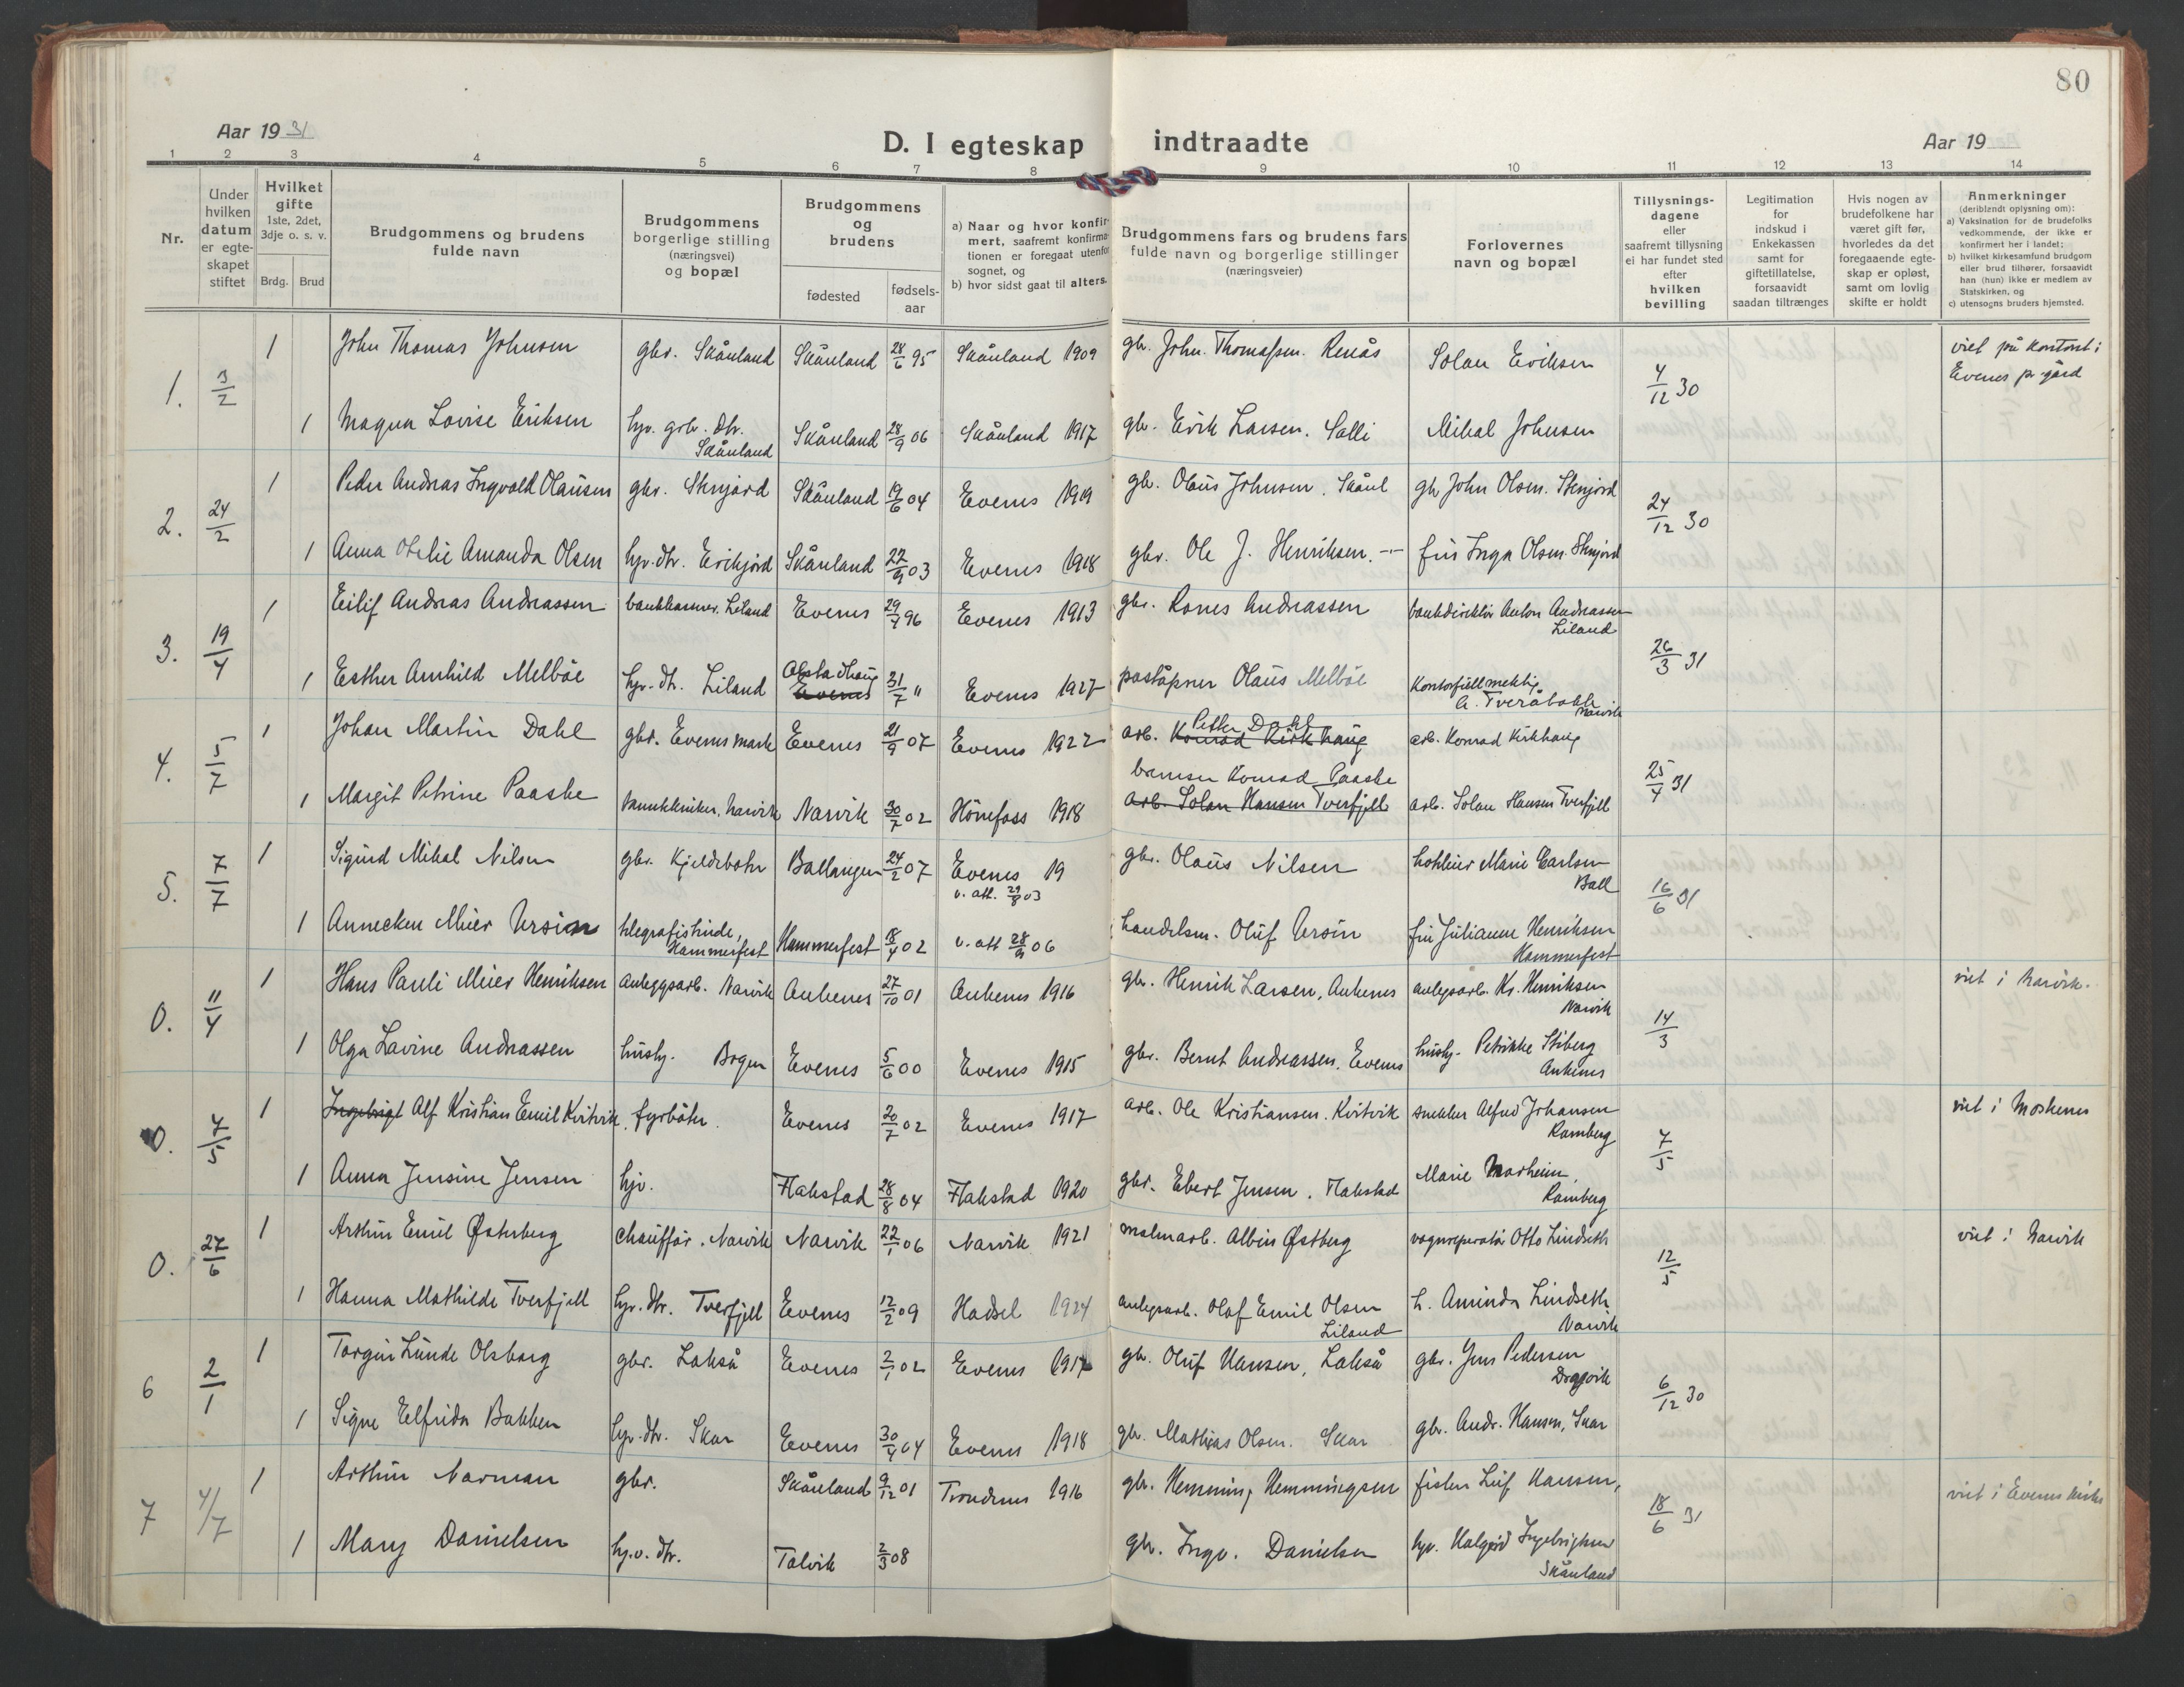 80
Aar 1931
D. I egteskap indtraadte
Aar 19
1 2 3 4 5 6 7 8 9 10 11 12 13 14
Nr.
Under hvilken datum er egte-skapet stiftet
Hvilket gifte
1ste, 2det, 3dje o. s. v.
Brdg. Brud
Brudgommens og brudens fulde navn
Brudgommens borgerlige stilling (næringsvei) og bopæl
Brudgommens og brudens
fødested
fødsels-aar
a) Naar og hvor konfir-mert, saafremt konfirma-tionen er foregaat utenfor sognet, og
b) hvor sidst gaat til alters.
Brudgommens fars og brudens fars fulde navn og borgerlige stillinger (næringsveier)
Forlovernes navn og bopæl
Tillysnings-dagene eller saafremt tillysning ei har fundet sted efter hvilken bevilling
Legitimation for indskud i Enkekassen samt for giftetillatelse, forsaavidt saadan tiltrænges
Hvis nogen av brudefolkene har været gift før, hvorledes da det foregaaende egte-skap er opløst, samt om lovlig skifte er holdt
Anmerkninger
(deriblendt oplysning om):
a) Vaksination for de brudefolks vedkommende, der ikke er konfirmert her i landet;
b) hvilket kirkesamfund brudgom eller brud tilhører, forsaavidt han (hun) ikke er medlem av Statskirken, og
c) utensogns bruders hjemsted.
1. 3/2 1 John Thomas Johnsen gbr. Skånland Skånland 28/6 95 Skånland 1909 gb. John Thomassen. Renås Solan Eriksen 4/12 30 viet på kontoret i Evenes p-gård
1 Magna Lovise Eriksen hjv. grb. dtr. Skånland Skånland 28/9 06 Skånland 1917 gb. Erik Larsen. Salli Mikal Johnsen
2. 24/2 1 Peder Andreas Ingvald Olausen gbr. Stenjord Skånland 19/6 04 Evenes 1919 gb. Olaus Johnsen. Skånl gb John Olsen. Stenjord 24/12 30
1 Anna Otelie Amanda Olsen hjv. dtr. Erikjord Skånland 22/9 03 Evenes 1918 gbr. Ole J. Henriksen. -"- frü Inga Olsen. Stenjord
3. 19/4 1 Eilif Andreas Andreassen bankkasserer. Liland Evenes 29/7 96 Evenes 1913 gbr. Rones Andreassen bankdirektör Anton Andreassen Liland 26/3 31
1 Esther Arnhild Melböe hjv. dtr. Liland Alstadhaug Evenes 31/7 " Evenes 1927 poståpner Olaüs Melböe Kontorfullmektig A. Tveråbakk Narvik
4. 5/7 1 Johan Martin Dahl gbr. Evenesmark Evenes 21/9 07 Evenes 1922 arb. Konrad Kirkhaug Petter Dahl arb. Konrad Kirkhaug 25/4 31
1 Margit Petrine Paaske tanntekniker. Narvik Narvik 30/7 02 Hönefoss 1918 banesn Konrad Paaske arb. Solan Hansen Tverfjell arb. Solan Hansen Tverfjell
5. 7/7 1 Sigurd Mikal Nilsen gbr. Kjeldebotn Ballangen 24/2 07 Evenes 19 v. att. 29/8 03 gbr. Olaüs Nilsen Marie Carlsen Ball 16/6 31
1 Annecken Meier Ursin telegrafistinde, Hammerfest Hammerfest 18/4 02 v. att 28/9 06 handelsm. Olüf Ursin frü Julianne Henriksen Hammerfest
0. 11/4 1 Hans Pauli Meier Henriksen anleggsarb. Narvik Ankenes 27/10 01 Ankenes 1916 gbr. Henrik Larsen, Ankenes anlegsarb. Kr. Henriksen Narvik 14/3 viet i Narvik.
1 Olga Lavine Andreassen hüshj. Bogen Evenes 5/6 00 Evenes 1915 gbr. Bernt Andreassen. Evenes hüshj. Petrikke Stiberg Ankenes
0. 4/5 1 Ingebrigt Alf Kristian Emil Kvitvik. fyrböter. Evenes 20/7 02 Evenes 1917 arb. Ole Kristiansen. Kvitvik snekker Alfred Johansen Ramberg 7/5 viet i Moskenes
1 Anna Jensine Jensen hjv. Flakstad 28/8 04 Flakstad 1920 gbr. Ebert Jensen. Flakstad Marie Marheim. Ramberg
0. 27/6 1 Arthür Emil Østerberg chaüffør. Narvik Narvik 22/1 06 Narvik 1921 malmarb. Albin Østberg vognreperatör Otto Lindseth 12/5 viet i Narvik
1 Hanna Mathilde Tverfjell hjv. dtr. Tverfjell Evenes 12/2 09 Hadsel 1924 anlegsarb. Olaf Emil Olsen Liland h. Aminda Lindseth Narvik
6 2/1 1 Torgeir Lünde Olsborg gbr. Lakså Evenes 2/1 02 Evenes 1917 gb. Olüf Hansen, Lakså gbr. Jens Pedersen Dragvik 6/12 30
1 Signe Elfrida Bakken hjv. dtr. Skar Evenes 30/4 04 Evenes 1918 gb. Mathias Olsen. Skar gbr. Andr. Hansen, Skar
7 4/7 1 Arthür Norman gbr. Skånland 9/12 01 Trondenes 1916 gb. Hemming Hemmingsen fisker Leif Hansen, 18/6 31 viet i Evenes kirke
1 Mary Danielsen hj.v. dtr. Talvik 2/3 08 gb. Ingv. Danielsen hjv. Halgerd Ingebrigtsen Skånland